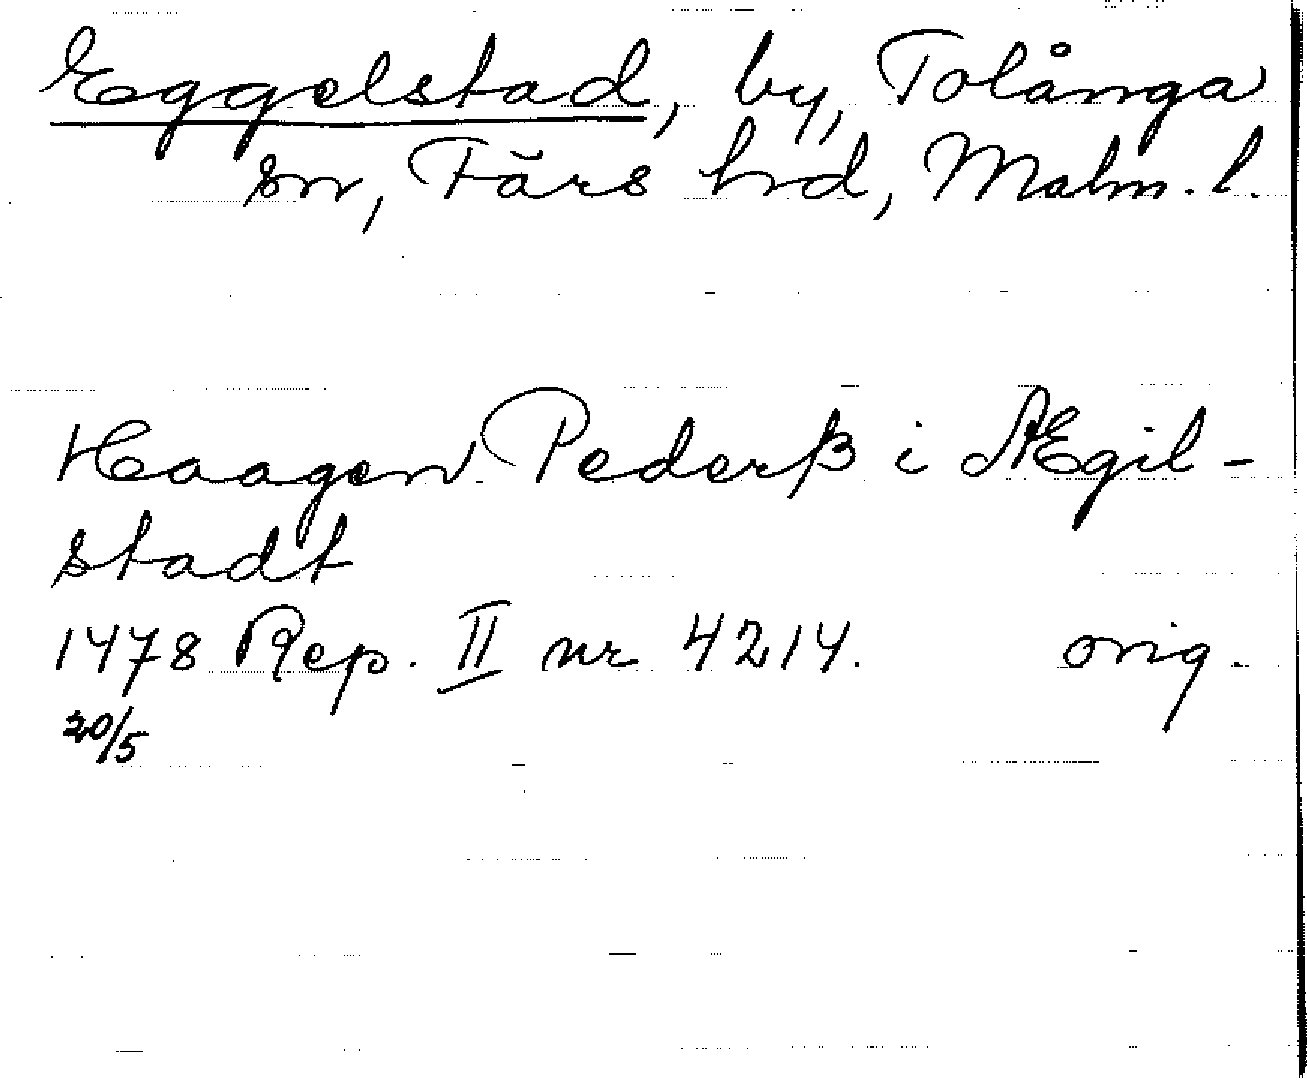 Eggelstad, by, Tolånga
sn, Färs hd, Malm. l.
Haagen Pederß i Ægil-
stadt
1478 Rep. II nr 4214. orig.
20/5